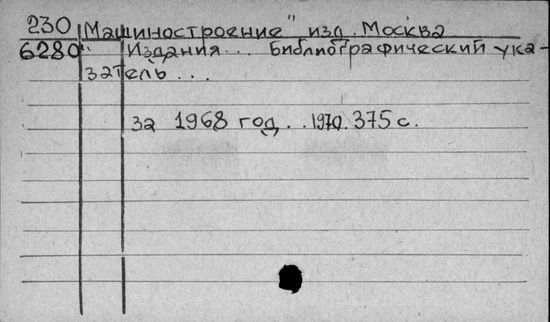 230 Машиностроение" изд. Москва
6280 " Издания... Библиографический ука-
затель...
за 1968 год..1970. 375 с.